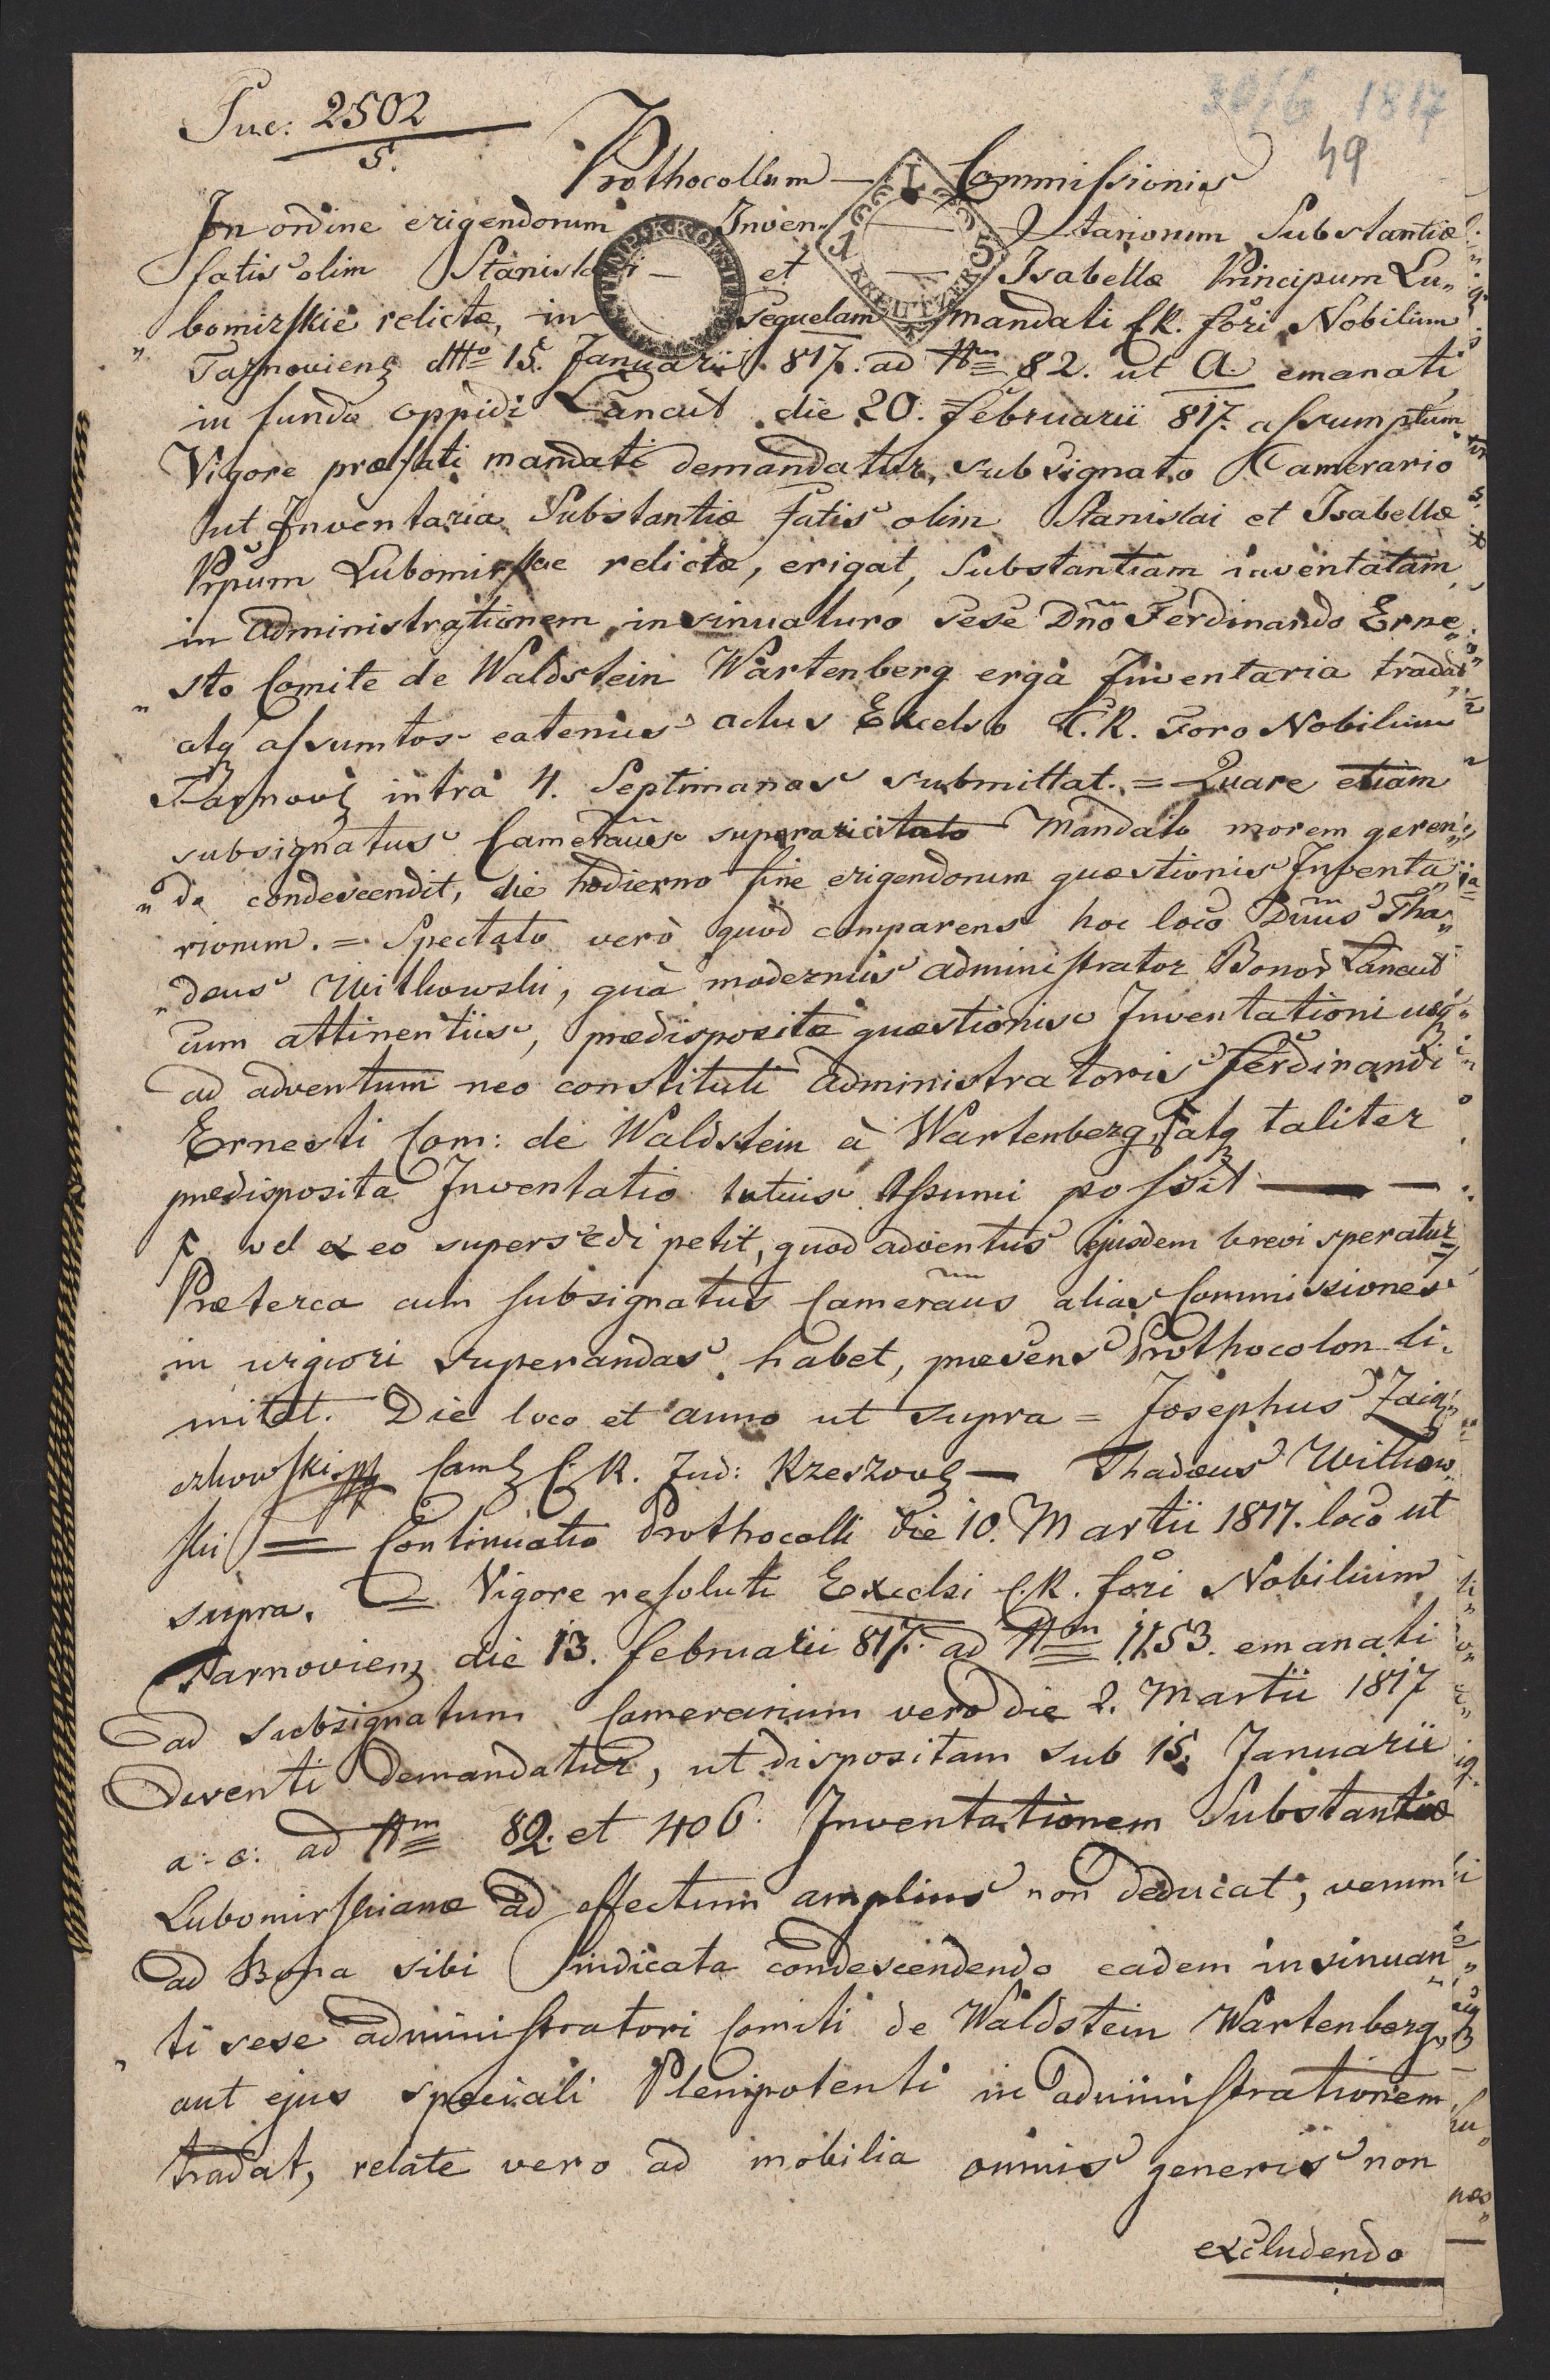 Suc: 2502
5.
3016 1817
49
Prothocollum — Commissionis
In ordine erigendorum Inven„ tariorum Substantiæ
fatis olim Stanislai — et — Isabellæ Principum Lu„
„bomirskie relictæ, in sequelam mandati C.R. fori Nobilium
Tarnoviens dtto 15. Januarii 817. ad Nrm 82. ut A. emanati
in fundo oppidi Łancut die 20. Februarii 817. assumptum
Vigore præfati mandati demandatur, subsignato Camerario
ut Inventaria Substantiæ fatis olim Stanislai et Isabellæ
Prpum Lubomirskie relictæ, erigat, Substantiam inventatam
in administrationem, insinuaturo sese Dño Ferdinando Erne„
„sto Comite de Waldstein Wartenberg ergà Inventaria tradat
atq assumtos eatenus actus Excelso C.R. Foro Nobilium
Tarnov intrà 4. Septimanas submittat. = Quare etiàm
subsignatus Cameraũs supra citato Mandato morem geren„
„do condescendit, die hodierno fine erigendorum quæstionis Inventa„
riorum. = Spectato verò quòd comparens hoc loco Dnũs Tha„
„deus Witkowski, quà modernus administrator Bonor Łancut
cum attinentiis, prædispositæ quæstionis Inventationi usq
ad adventum neo constituti administratoris Ferdinandi
Ernesti Com: de Waldstein à Wartenberg, F atq taliter
prædisposita Inventatio tutius assumi possit — —
F. vel ex eo supersedi petit, quod adventus ejusdem brevi speratur
Præterea cum subsignatus Cameraũs alias Commissiones
in urgiori superandas habet, præsens Prothocolon li„
mitat. Die loco et anno ut supra = Josephus Zaią„
czkowski mp Cam C.R. Jud: Rzeszov — Thadæus Witkow„
ski = Continuatio Prothocolli die 10. Martii 1817. loco ut
supra. = Vigore resoluti Excelsi C.R. fori Nobilium
Tarnoviens die 13. februarii 817. ad Nrm 1153. emanati
ad subsignatum Camerarium verò die 2. Martii 1817
deventi demandatur, ut dispositam sub 15. Januarii
a: c: ad Nrm 82. et 406. Inventationem Substantiæ
Lubomirskianæ ad effectum amplius non deducat, verum
ad Bona sibi indicata condescendendo eadem insinuan„
ti sese administratori Comiti de Waldstein Wartenberg„
aut ejus speciali Plenipotenti in administrationem
tradat, relate vero ad mobilia omnis generis non
excludendo